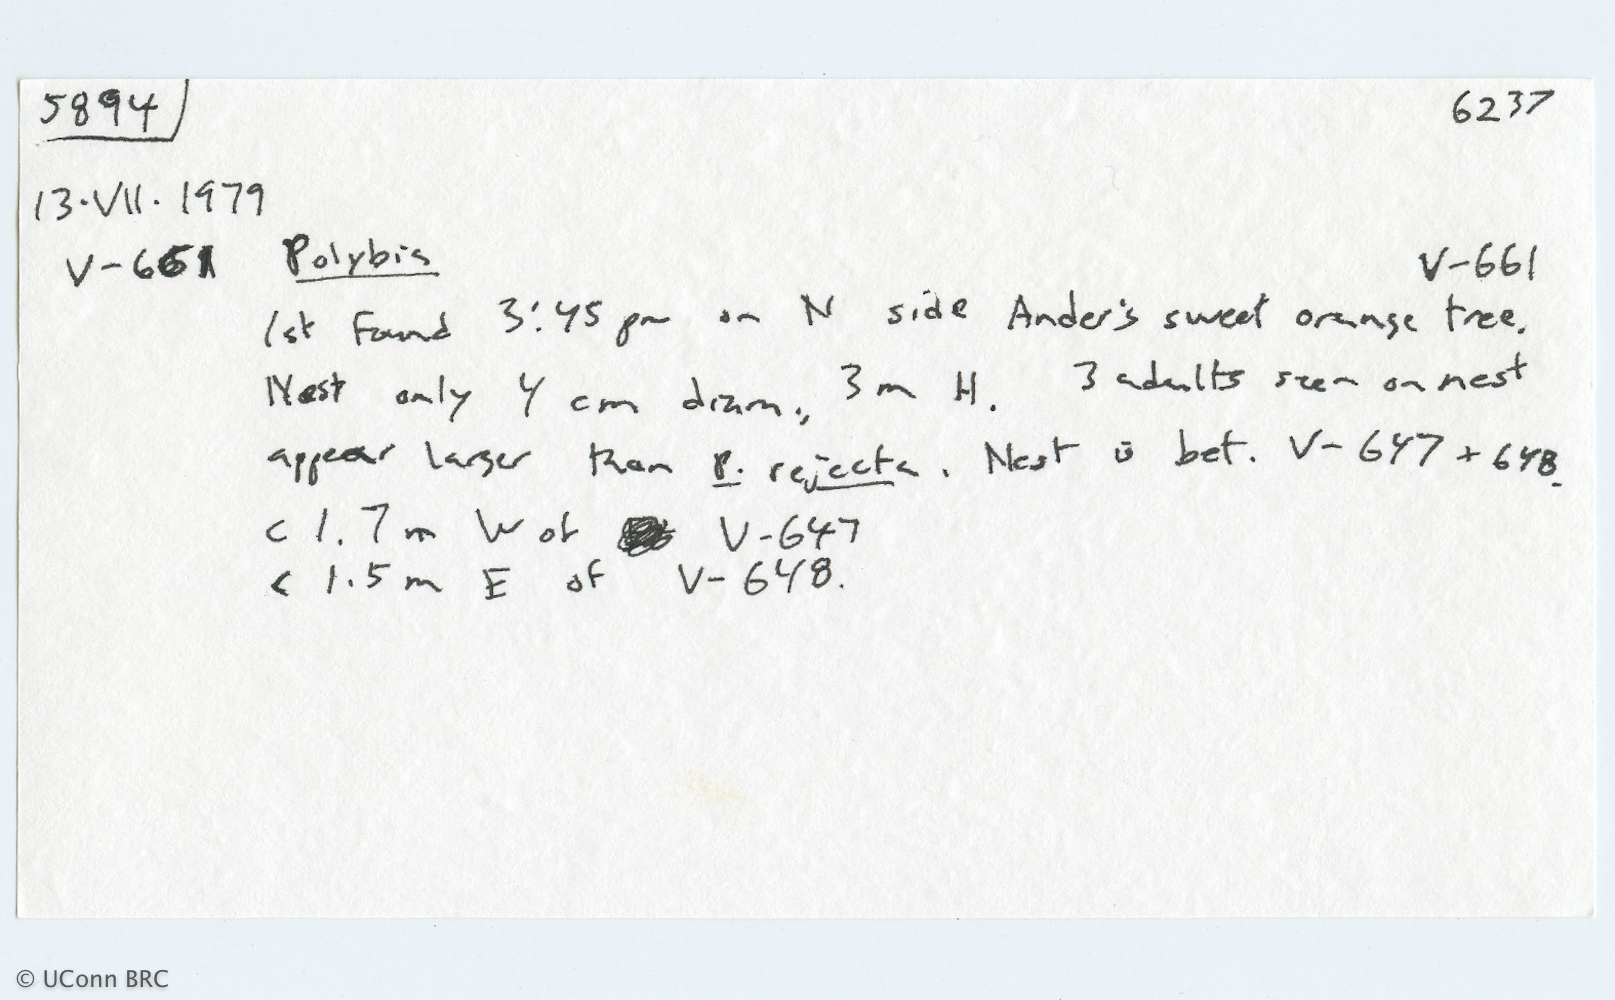 5894 6237
13.VII.1979
V-661 Polybia V-661
1st found 3:45 pm on N side Ander's sweet orange tree.
Nest only 4 cm diam., 3 m H. 3 adults seen on nest
appear larger than P. rejecta. Nest is bet. V-647 + 648.
< 1.7 m W of V-647
< 1.5 m E of V-648.
© UConn BRC